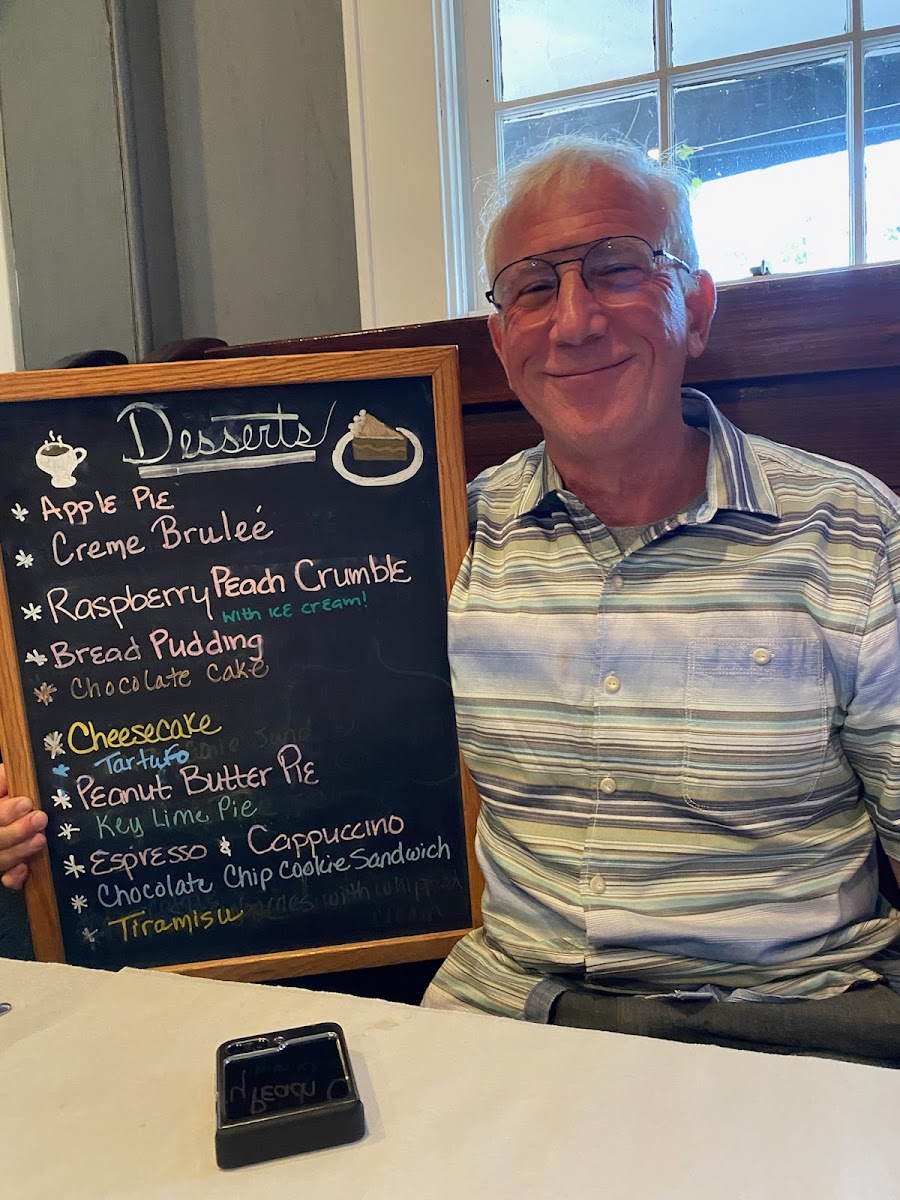 Desserts
* Apple Pie
* Creme Bruleé
* Raspberry Peach Crumble
with ice cream!
* Bread Pudding
* Chocolate Cake
* Cheesecake
* Tartufo
* Peanut Butter Pie
* Key Lime Pie
* Espresso & Cappuccino
* Chocolate Chip Cookie Sandwich
* Tiramisu
with whipped
cream
Peach